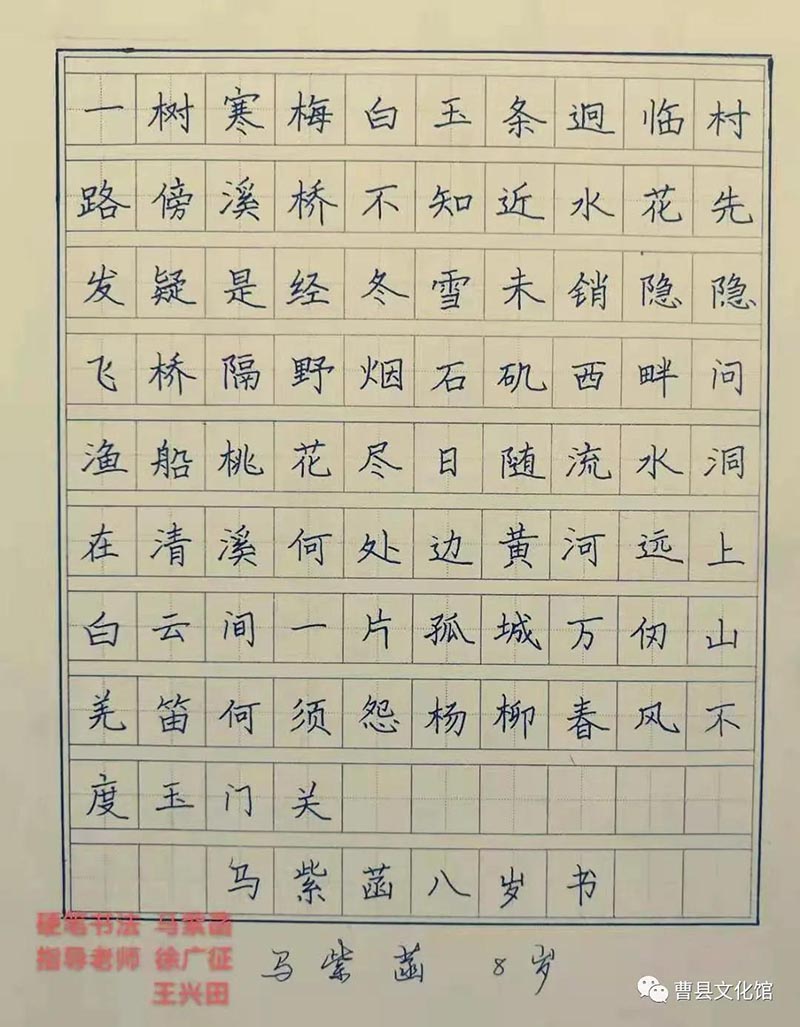 一树寒梅白玉条迥临村
路傍溪桥不知近水花先
发疑是经冬雪未销隐隐
飞桥隔野烟石矶西畔问
渔船桃花尽日随流水洞
在清溪何处边黄河远上
白云间一片孤城万仞山
羌笛何须怨杨柳春风不
度玉门关
马紫菡八岁书
硬笔书法 马紫菡
指导老师 徐广征
王兴田
马紫菡 8岁
曹县文化馆